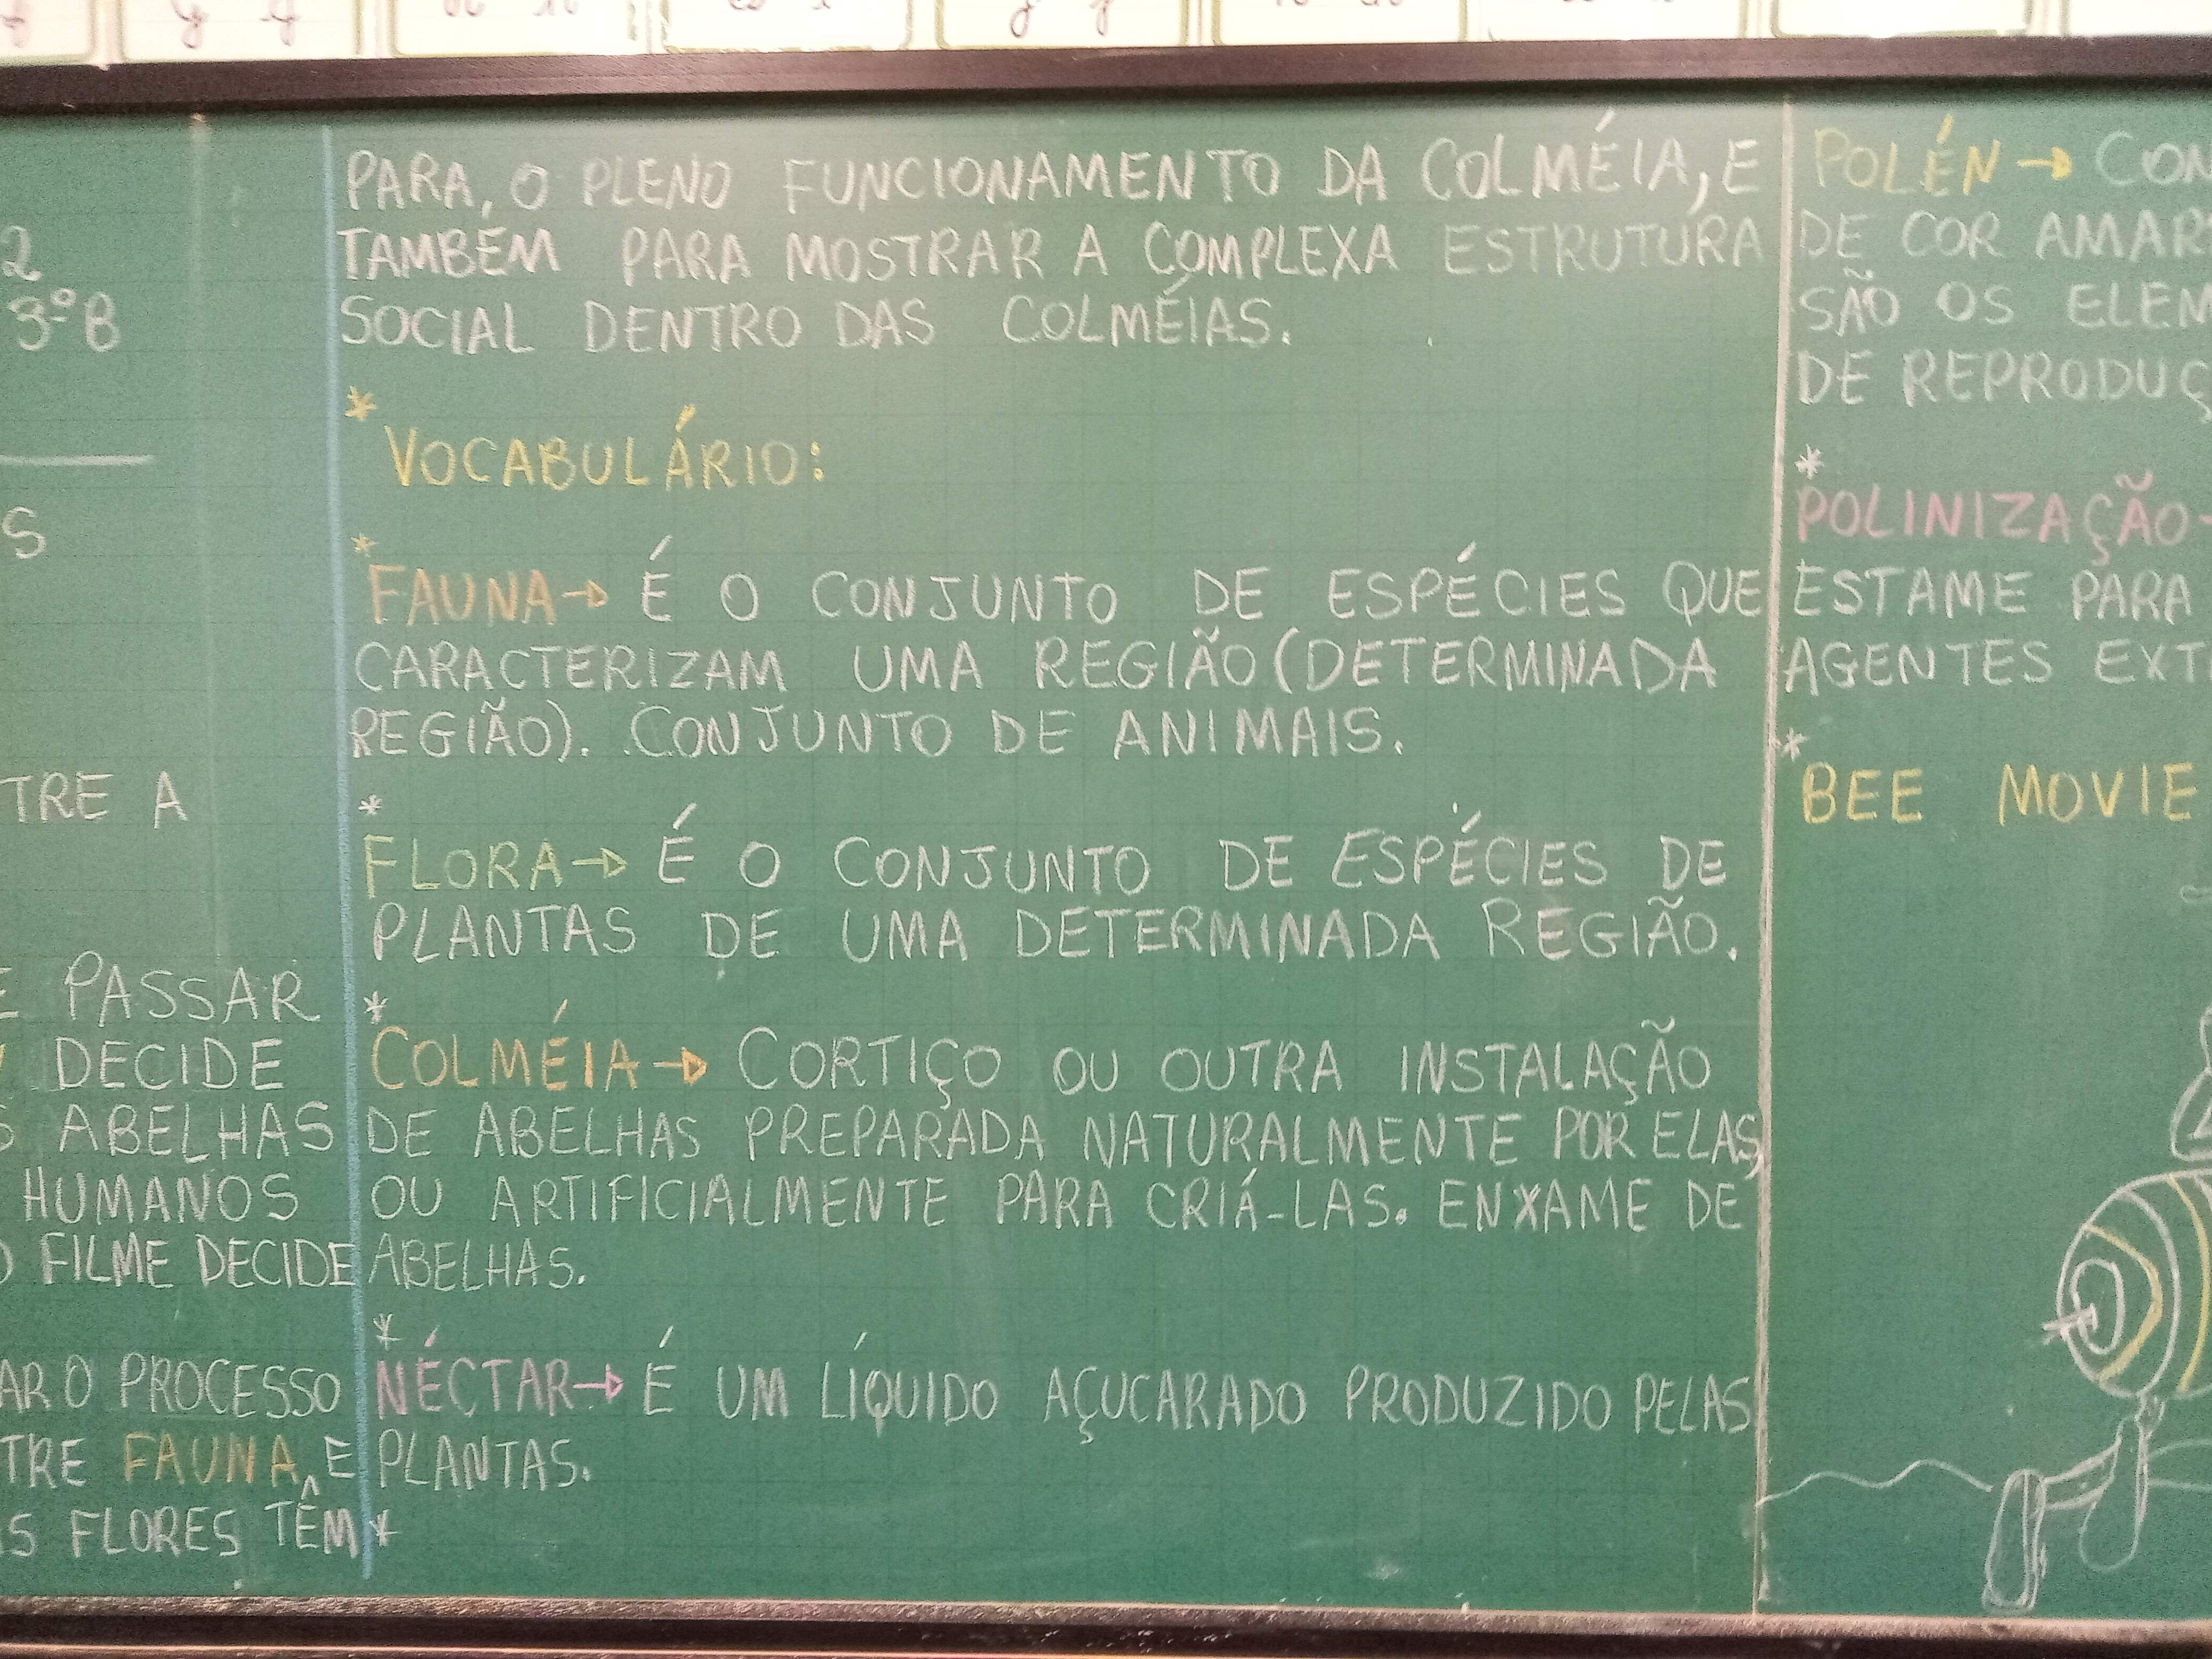 2
3º B
S
TRE A
PASSAR
DECIDE
S ABELHAS
HUMANOS
O FILME DECIDE
AR O PROCESSO
TRE FAUNA, E
S FLORES TÊM
PARA, O PLENO FUNCIONAMENTO DA COLMÉIA, E
TAMBÉM PARA MOSTRAR A COMPLEXA ESTRUTURA
SOCIAL DENTRO DAS COLMÉIAS.
*
VOCABULÁRIO:
*
FAUNA→ É O CONJUNTO DE ESPÉCIES QUE
CARACTERIZAM UMA REGIÃO (DETERMINADA
REGIÃO). CONJUNTO DE ANIMAIS.
*
FLORA→ É O CONJUNTO DE ESPÉCIES DE
PLANTAS DE UMA DETERMINADA REGIÃO.
*
COLMÉIA→ CORTIÇO OU OUTRA INSTALAÇÃO
DE ABELHAS PREPARADA NATURALMENTE POR ELAS,
OU ARTIFICIALMENTE PARA CRIÁ-LAS. ENXAME DE
ABELHAS.
*
NÉCTAR→ É UM LÍQUIDO AÇUCARADO PRODUZIDO PELAS
PLANTAS.
*
POLÉN→ CON
DE COR AMAR
SÃO OS ELEM
DE REPRODUÇ
*
POLINIZAÇÃO-
ESTAME PARA
AGENTES EXT
*
BEE MOVIE